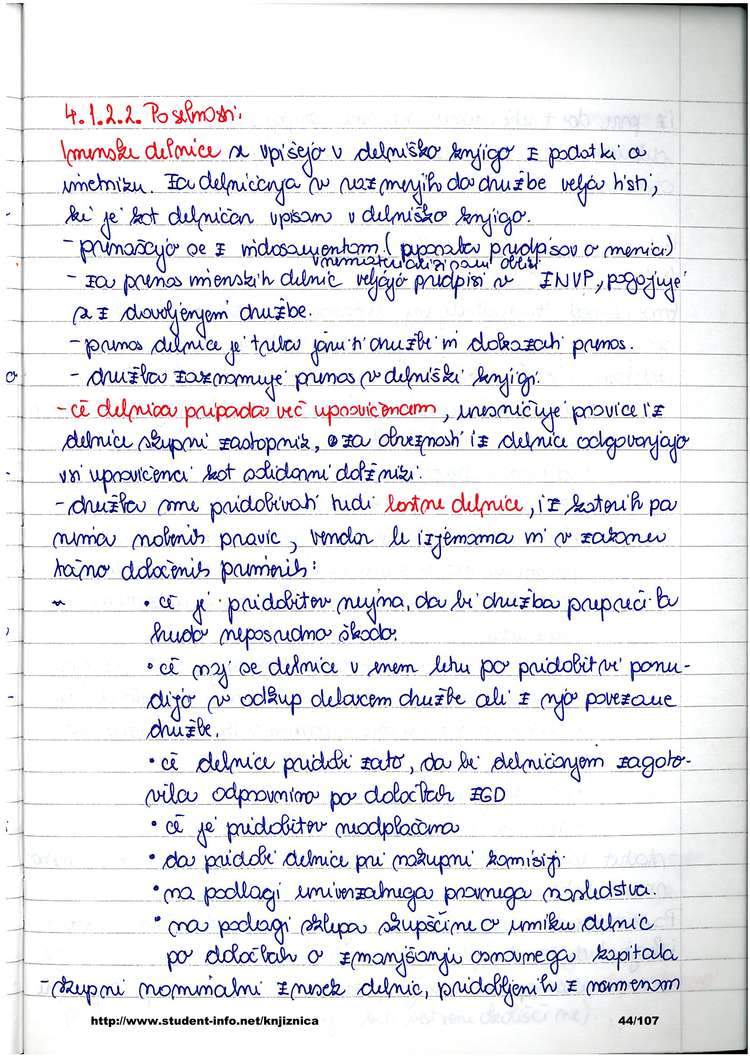 4.1.2.2. Posebnosti:
Imenske delnice se vpišejo v delniško knjigo z podatki o
imetniku. Za delničarja v razmerjih do družbe velja tisti,
ki je kot delničar vpisan v delniško knjigo.
- prenašajo se z indosamentom (uporaba predpisov o menici)
v nematerializirani obliki
- za prenos imenskih delnic veljajo predpisi v ZNVP, pogojuje
se z dovoljenjem družbe.
- prenos delnice je treba javiti družbi in dokazati prenos.
- družba zaznamuje prenos v delniški knjigi.
- če delnica pripada več upravičencem, uresničuje pravice iz
delnice skupni zastopnik, za obveznosti iz delnice odgovarjajo
vsi upravičenci kot solidarni dolžniki.
- družba sme pridobivati tudi lastne delnice, iz katerih pa
nima nobenih pravic, vendar le izjemoma in v zakonu
točno določenih primerih:
• če je pridobitev nujna, da bi družba preprečila
hudo neposredno škodo.
• če naj se delnice v enem letu po pridobitvi ponu-
dijo v odkup delavcem družbe ali z njo povezane
družbe.
• če delnice pridobi zato, da bi delničarjem zagoto-
vila odpravnino po določbah ZGD
• če je pridobitev neodplačna
• da pridobi delnice pri nakupni komisiji
• na podlagi univerzalnega pravnega nasledstva.
• na podlagi sklepa skupščine o umiku delnic
po določbah o zmanjšanju osnovnega kapitala
- skupni nominalni znesek delnic, pridobljenih z namenom
http://www.student-info.net/knjiznica 44/107